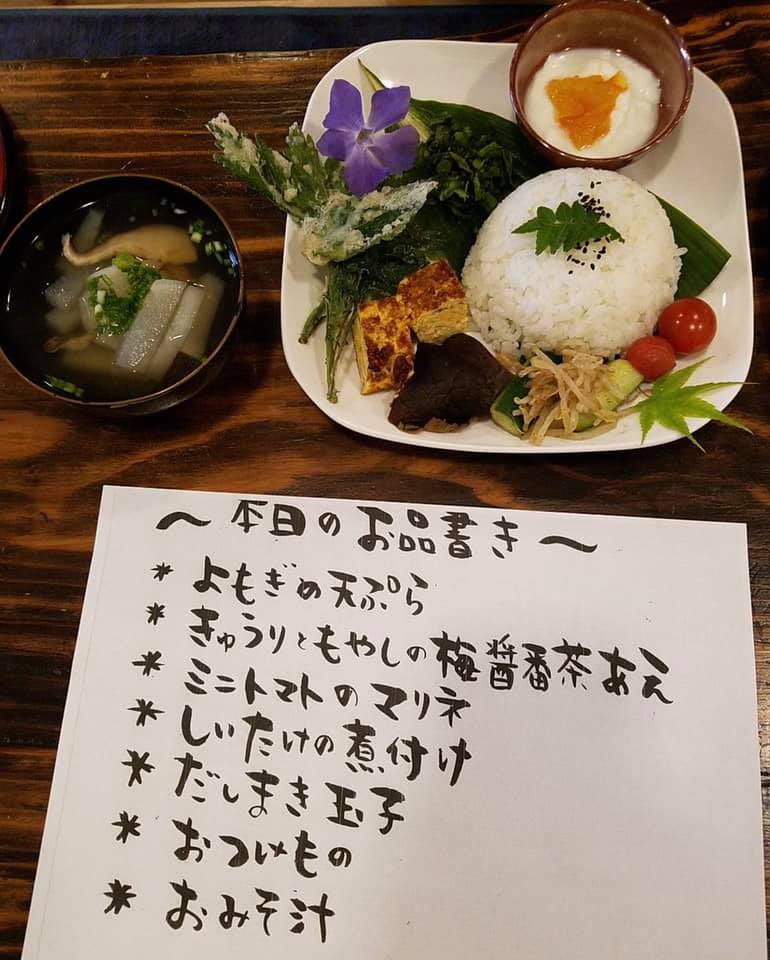 〜本日のお品書き〜
* よもぎの天ぷら
* きゅうりともやしの梅醤番茶あえ
* ミニトマトのマリネ
* しいたけの煮付け
* だしまき玉子
* おつけもの
* おみそ汁